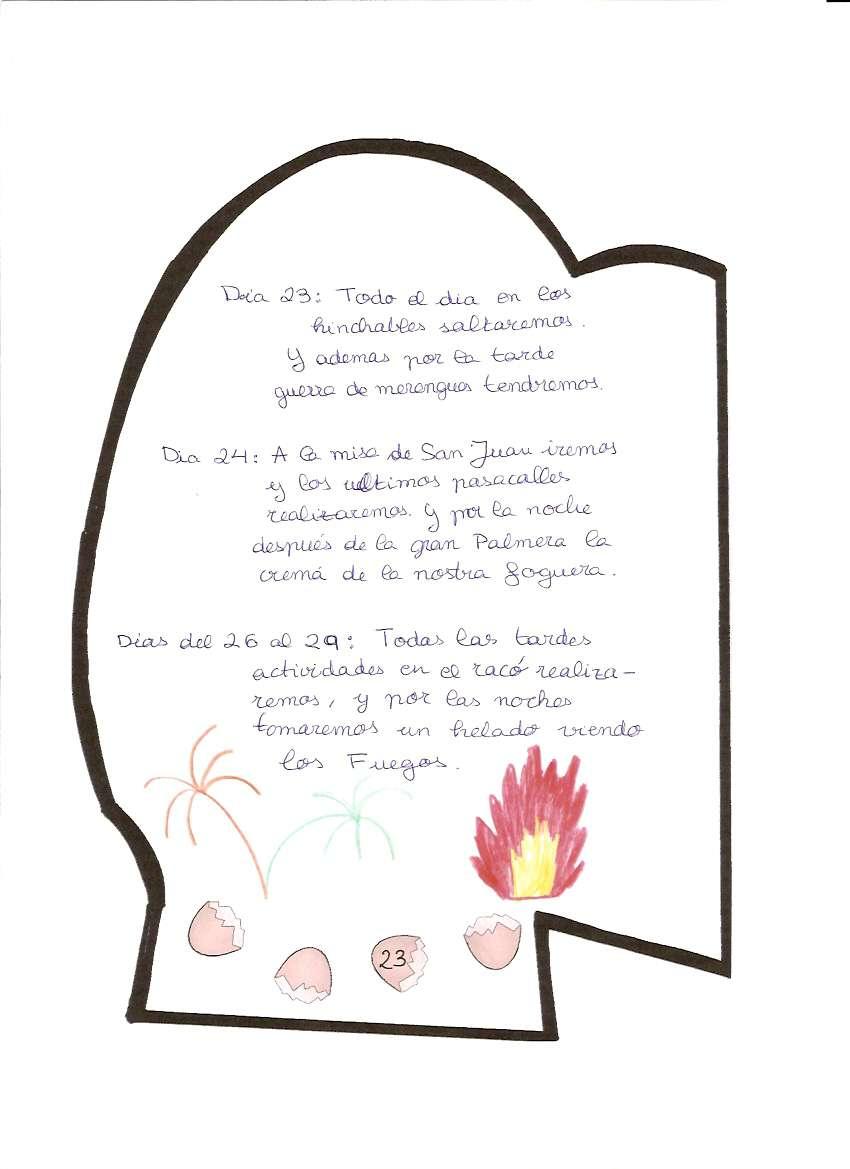 Dia 23: Todo el dia en los
hinchables saltaremos.
Y ademas por la tarde
guerra de merengue tendremos.
Dia 24: A la misa de San Juan iremos
y los ultimos pasacalles
realizaremos. Y por la noche
después de la gran Palmera la
cremá de la nostra foguera.
Dias del 26 al 29: Todas las tardes
actividades en el racó realiza-
remos, y por las noches
tomaremos un helado viendo
los Fuegos.
23